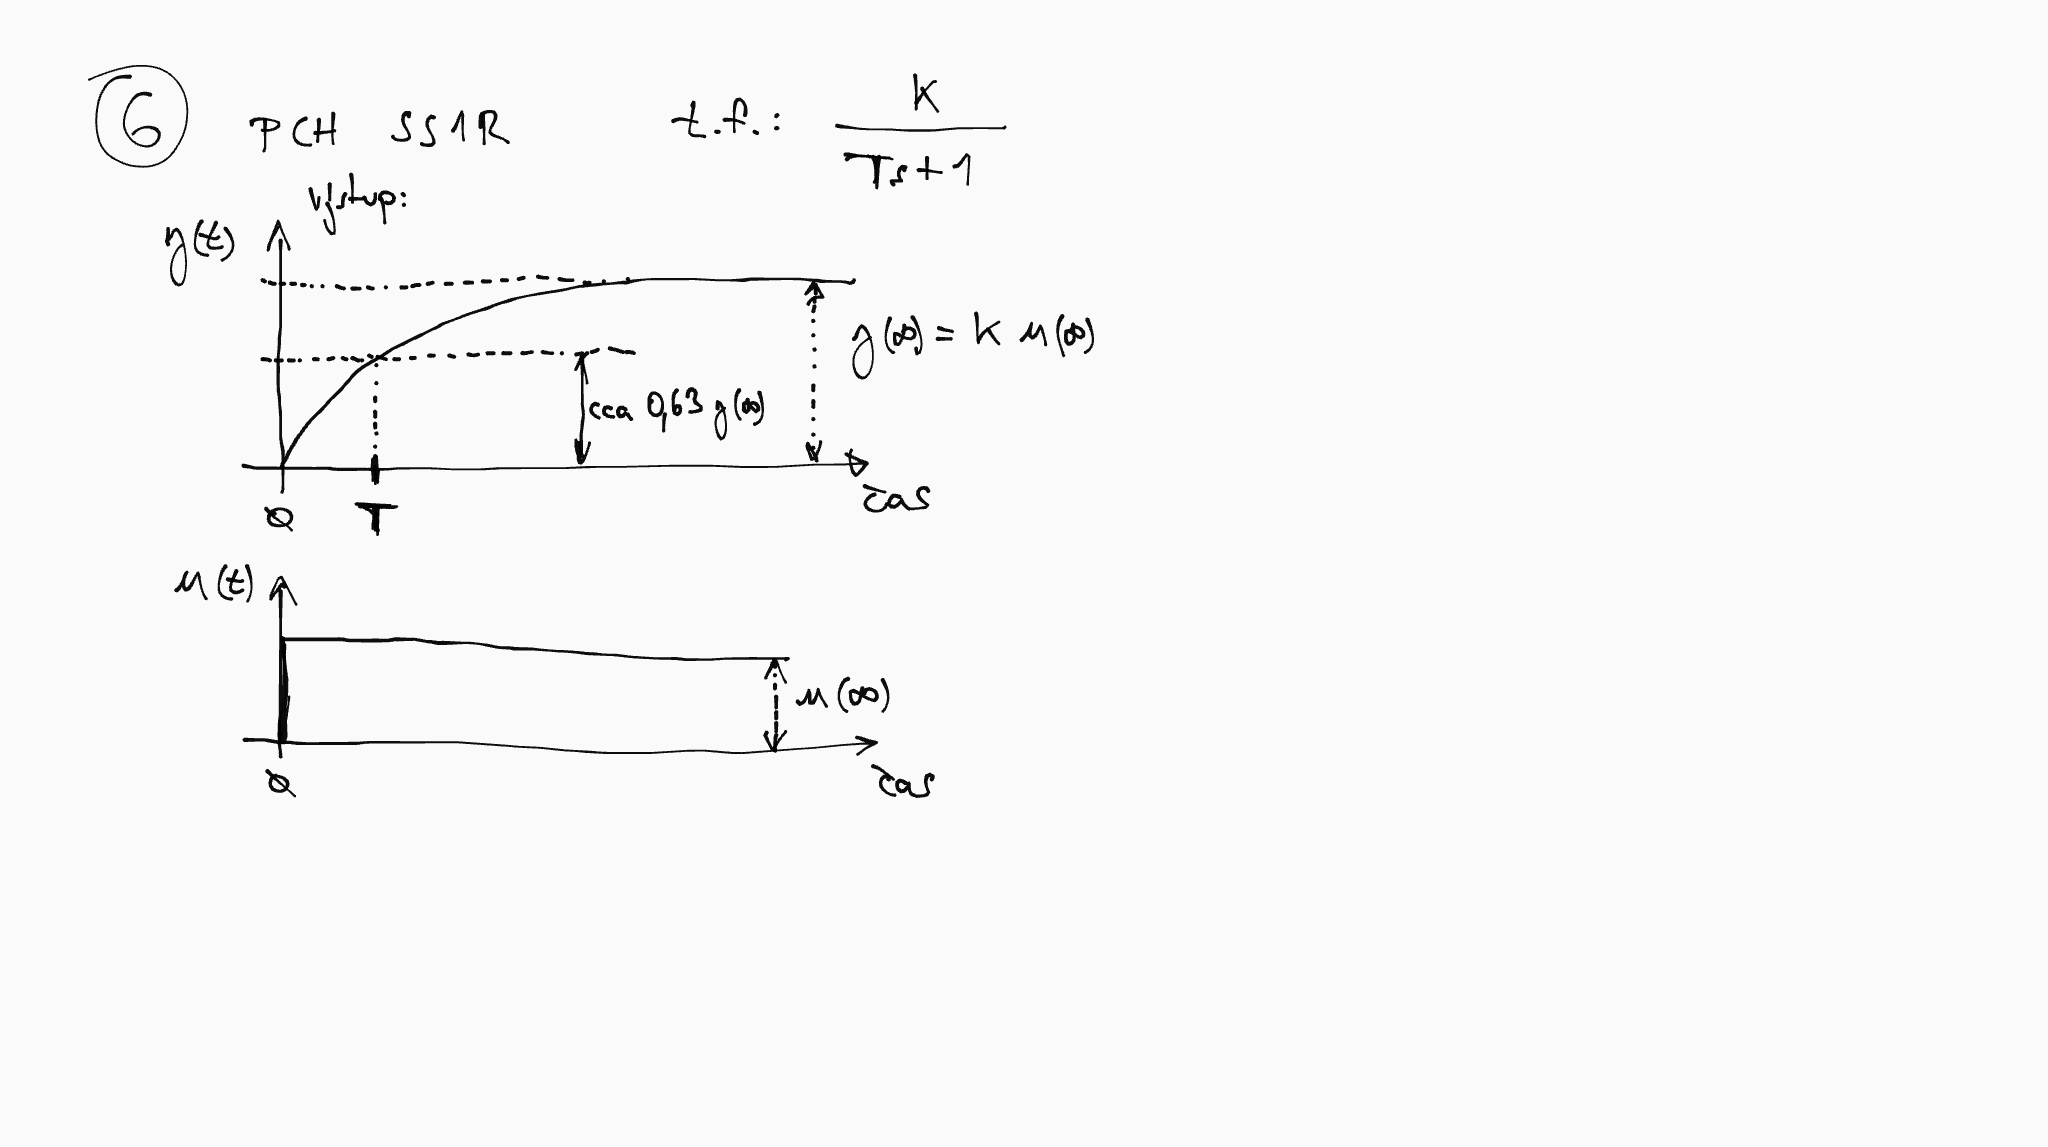 6 PCH SS1R t.f.: K
Ts+1
výstup:
y(t)
y(∞) = K u(∞)
cca 0,63 y(∞)
čas
0 T
u(t)
u(∞)
0 čas